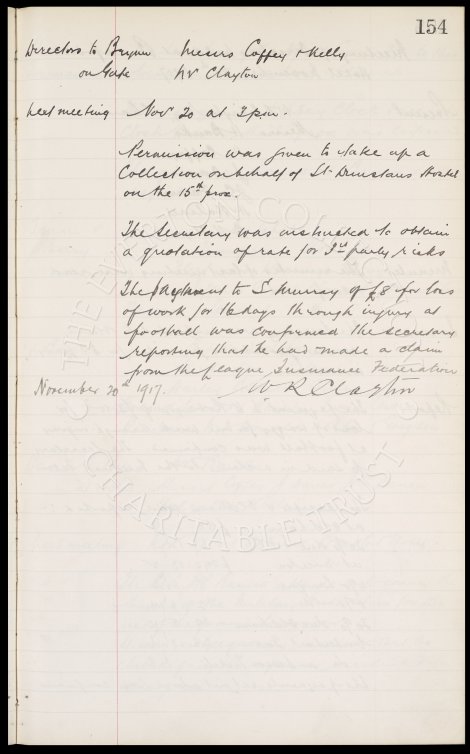 154
Directors to Bryom Messrs Coffey & Kelly
on Gate Mr Clayton
Next meeting Nov 20 at 3 p.m.
Permission was given to take up a
Collection on behalf of St Dunstans Hostel
on the 15th prox.
The Secretary was instructed to obtain
a quotation of rate for 3rd party risks
The payment to S. Murray of £8 for loss
of work for 16 days through injury at
football was confirmed the Secretary
reporting that he had made a claim
from the League Insurance Federation
November 20th 1917. W R Clayton
THE EVERTON COLLECTION
CHARITABLE TRUST